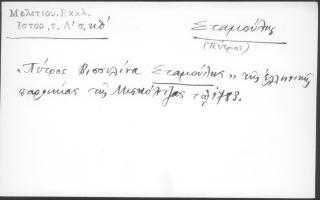 Μελετίου, Εκκλ.
Ιστορ., τ. Δ' σ. κδ'
Σταμούλης
(Πέτρος)
"Πέτρος Βισσιλίνα Σταμούλης" της ελληνικής
παροικίας της Μισκόλτζας τω 1783.